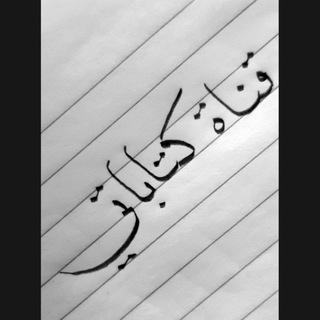 قناة كتاباتي